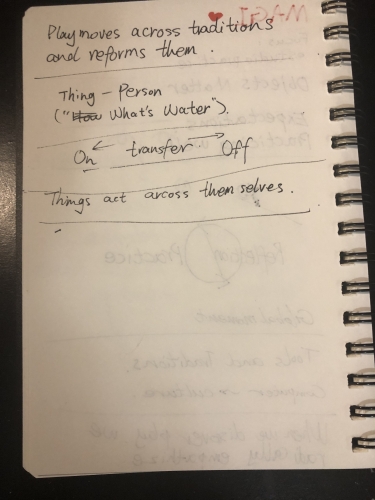 Play moves across traditions
and reforms them.
Thing - Person
("How What's Water").
On ← transfer → Off
Things act arcoss themselves.